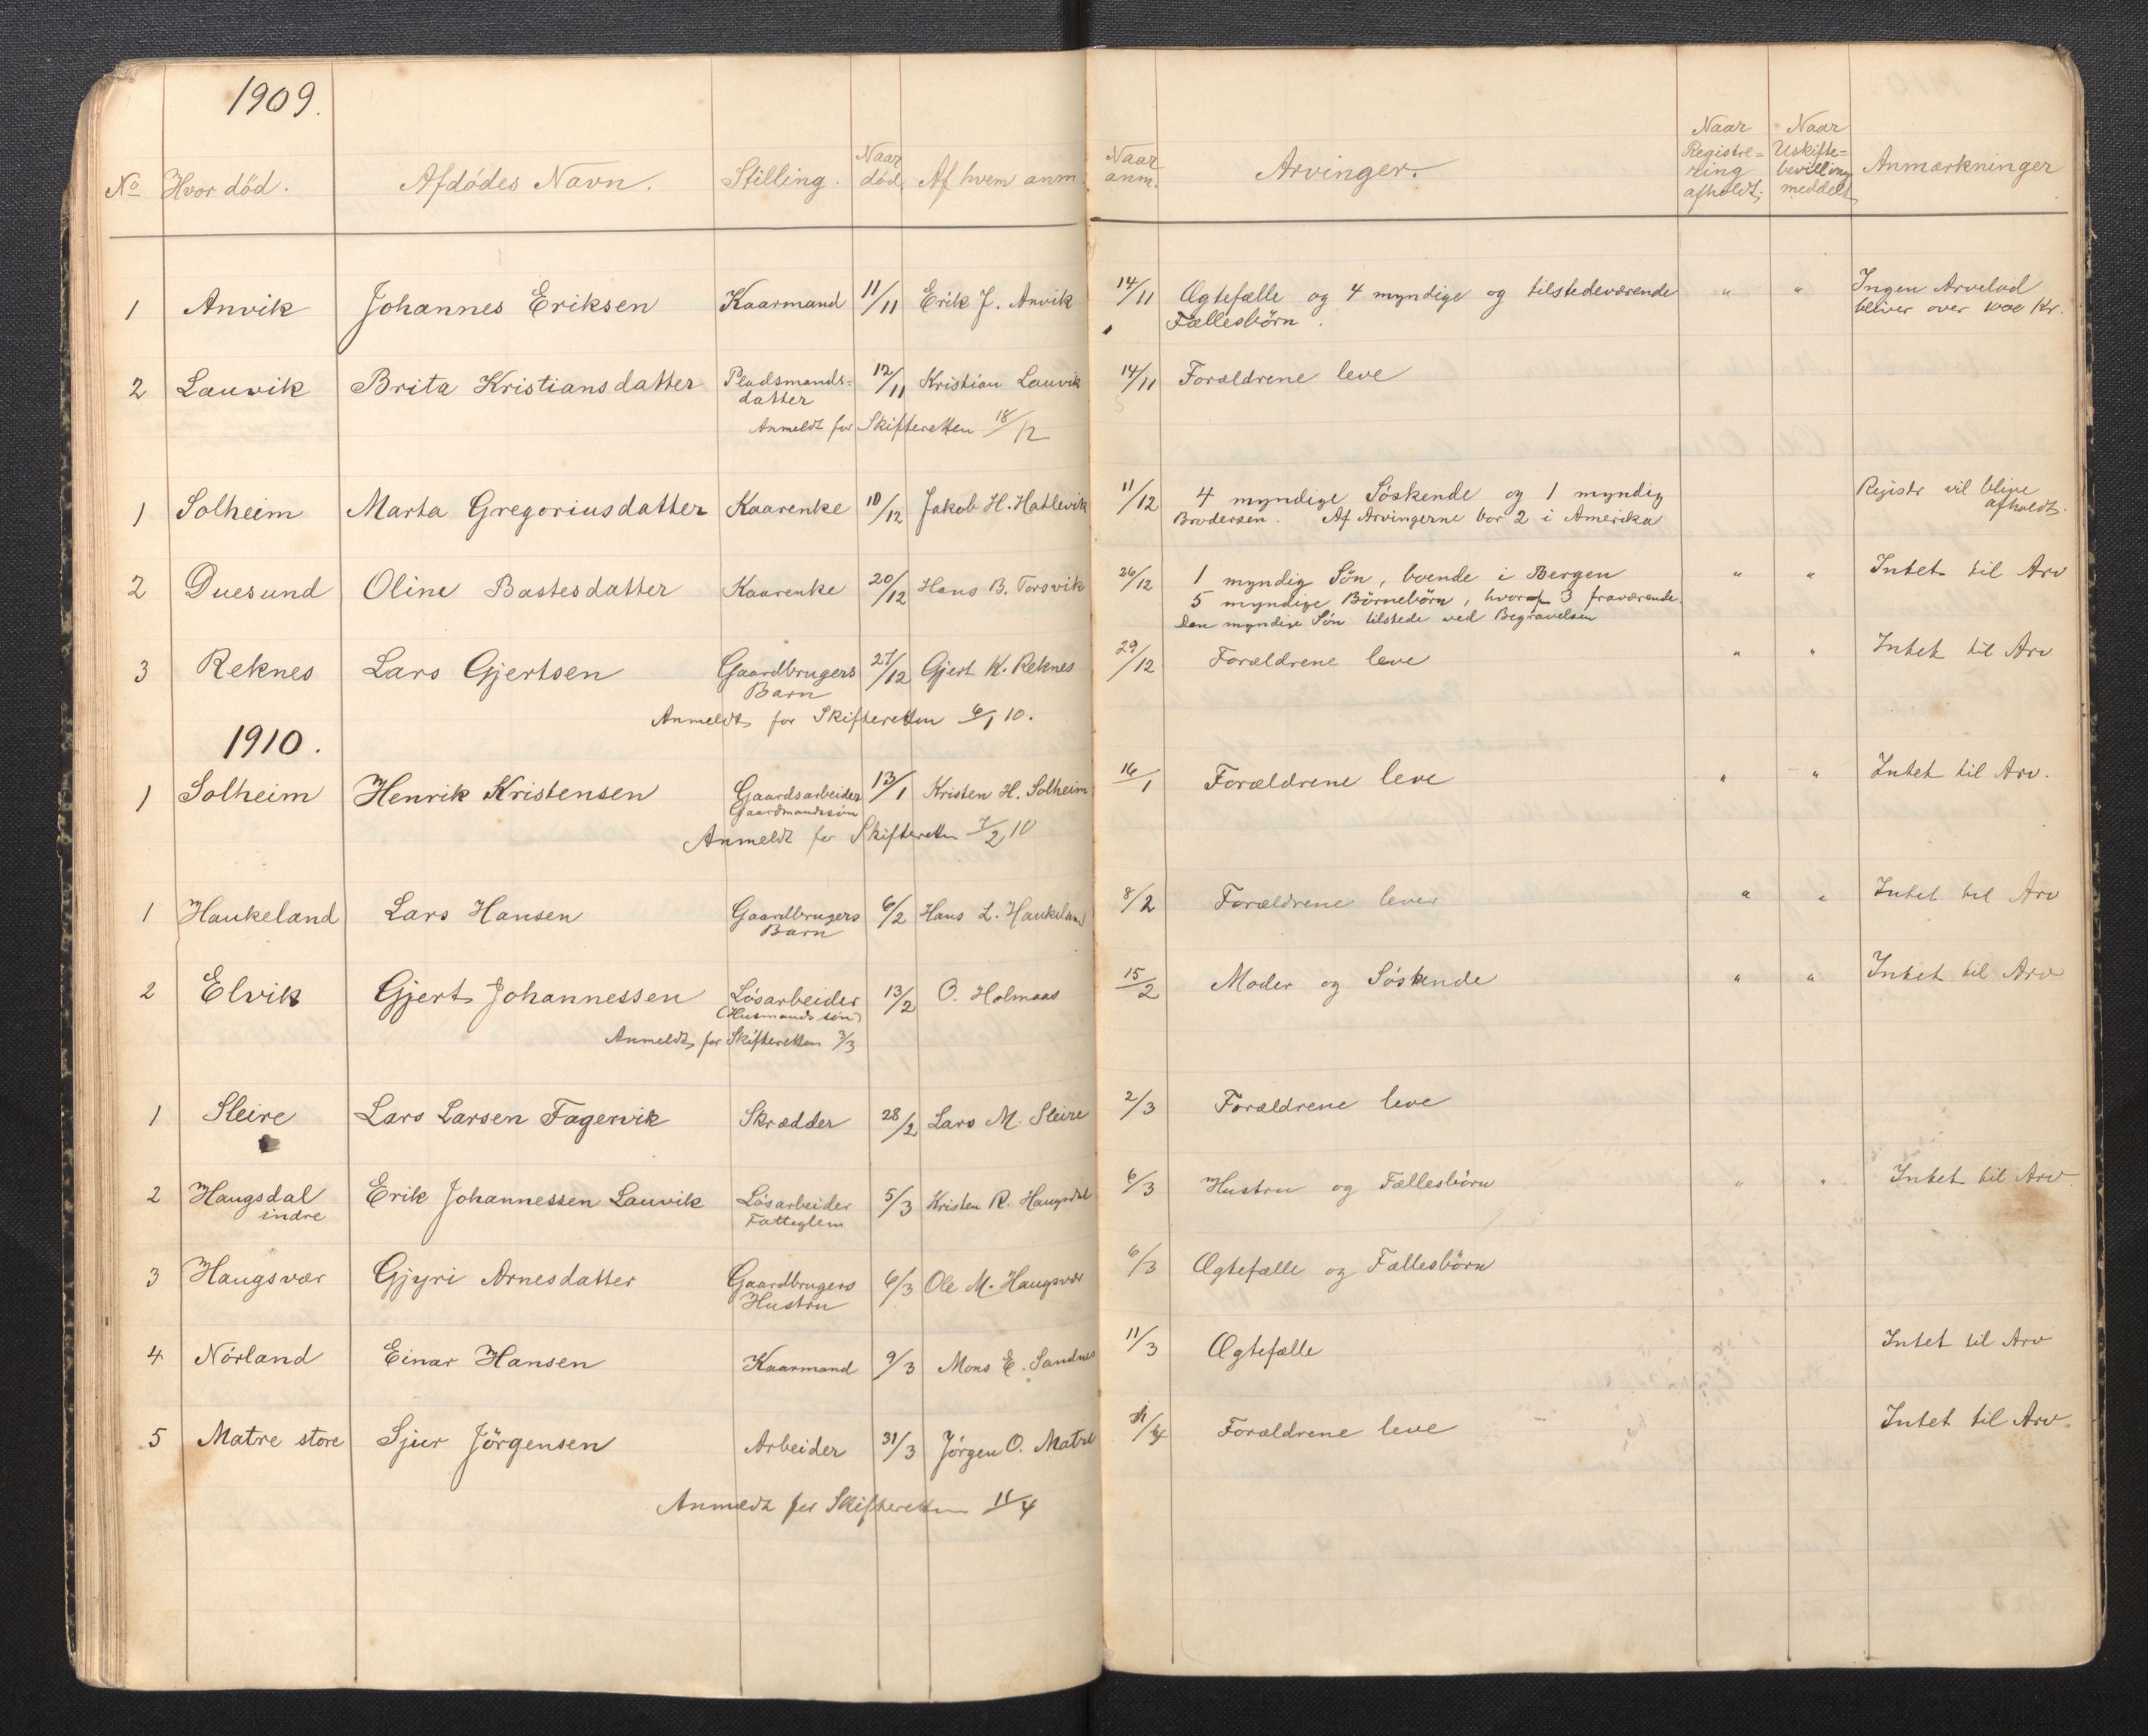 1909.
No Hvor död. Afdödes Navn. Stilling. Naar död Af hvem anm. Naar anm. Arvinger. Naar Registre=ring afholdt. Naar Uskifte=bevilling meddelt Anmærkninger
1 Anvik Johannes Eriksen Kaarmand 11/11 Erik J. Anvik 14/11 Ægtefælle og 4 myndige og tilstedeværende " " Ingen Arvelod
Fællesbörn. bliver over 1000 Kr.
2 Lauvik Brita Kristiansdatter Pladsmands= 12/11 Kristian Lauvik 14/11 Forældrene leve
datter
Anmeldt for Skifteretten 18/12
1 Solheim Marta Gregoriusdatter Kaarenke 10/12 Jakob H. Hatlevik 11/12 4 myndige Söskende og 1 myndig Registr vil blive
Brodersön. Af Arvingerne bor 2 i Amerika afholdt.
2 Duesund Oline Bastesdatter Kaarenke 20/12 Hans B. Torsvik 26/12 1 myndig Sön, boende i Bergen " " Intet til Arv
5 myndige Börnebörn, hvoraf 3 fraværende.
Den myndige Sön tilstede ved Begravelsen
3 Reknes Lars Gjertsen Gaardbrugers 27/12 Gjert K. Reknes 29/12 Forældrene leve " " Intet til Arv
Barn
Anmeldt for Skifteretten 6/1 10.
1910.
1 Solheim Henrik Kristensen Gaardsarbeider 13/1 Kristen H. Solheim 16/1 Forældrene leve " " Intet til Arv.
Gaardmandssön
Anmeldt for Skifteretten 7/2 10
1 Haukeland Lars Hansen Gaardbrugers 6/2 Hans L. Haukeland 8/2 Forældrene lever " " Intet til Arv
Barn
2 Elvik Gjert Johannessen Lösarbeider 13/2 O. Holmaas 15/2 Moder og Söskende " " Intet til Arv
(Husmandssön)
Anmeldt for Skifteretten 3/3
1 Sleire Lars Larsen Fagervik Skrædder 28/2 Lars M. Sleire 2/3 Forældrene leve
2 Haugsdal Erik Johannessen Lauvik Lösarbeider 5/3 Kristen R. Haugsdal 6/3 Hustru og Fællesbörn " " Intet til Arv.
indre Fatteglem
3 Haugsvær Gjyri Arnesdatter Gaardbrugers 6/3 Ole M. Haugsvær 6/3 Ægtefælle og Fællesbörn
Hustru
4 Nörland Einar Hansen Kaarmand 9/3 Mons E. Sandnes 11/3 Ægtefælle Intet til Arv
5 Matre store Sjur Jörgensen Arbeider 31/3 Jörgen O. Matre Forældrene leve Intet til Arv.
Anmeldt for Skifteretten 11/4